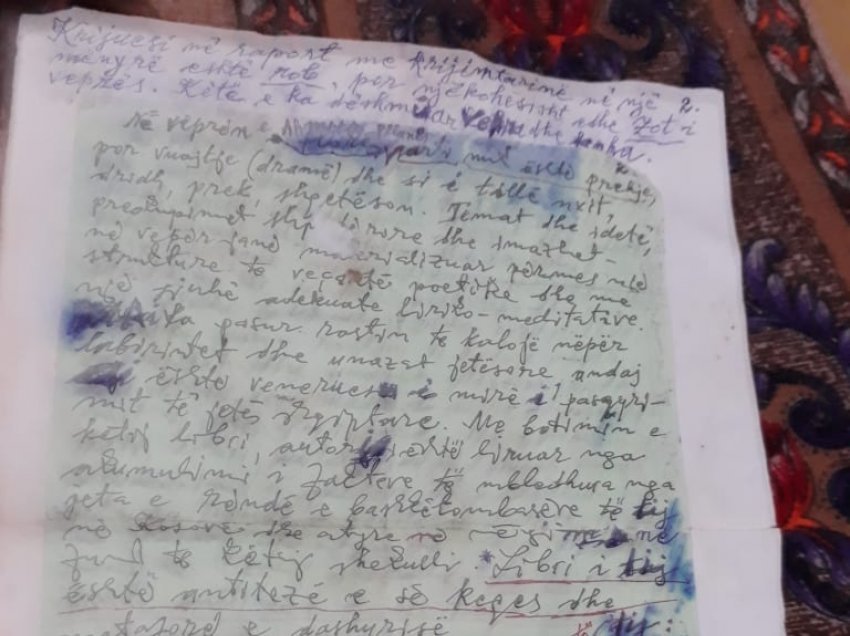 Krijuesi në raport me krijimtarinë në një 2.
mënyrë është rob, por njëkohësisht dhe Zot i
veprës. Këtë e ka dëshmuar vepra dhe
në veprën e
por vuajtje (dramë) dhe si e tillë nxit, prekje,
dridh, prek, shqetëson. Temat dhe idetë,
preokupimet shpirtërore dhe imazhet
në vepër janë materializuar përmes një
strukture të veçantë poetike dhe me
një gjuhë adekuate liriko-meditative.
pasur rastin të kalojë nëpër
labirintet dhe unazat jetësore andaj
është vemerues i mirë i pasqyri-
mit të jetës shqiptare. Me botimin e
këtij libri, autori është liruar nga
akumulimi i fakteve të mbledhura nga
jeta e rëndë e bashkëkombasëve të tij
në Kosovë dhe atyre në
fund të këtij shekulli. Libri i tij
është antitezë e së keqes dhe
e dashurisë